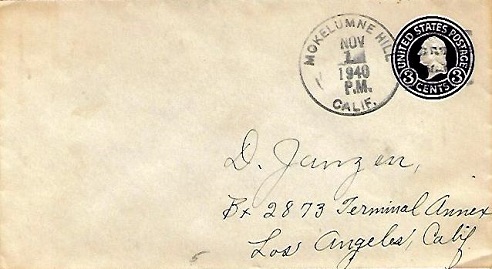 MOKELUMNE HILL
NOV
1
1940
P.M.
CALIF.
UNITED STATES POSTAGE
3 CENTS 3
D. Janzen,
Bx 2873 Terminal Annex
Los Angeles, Calif